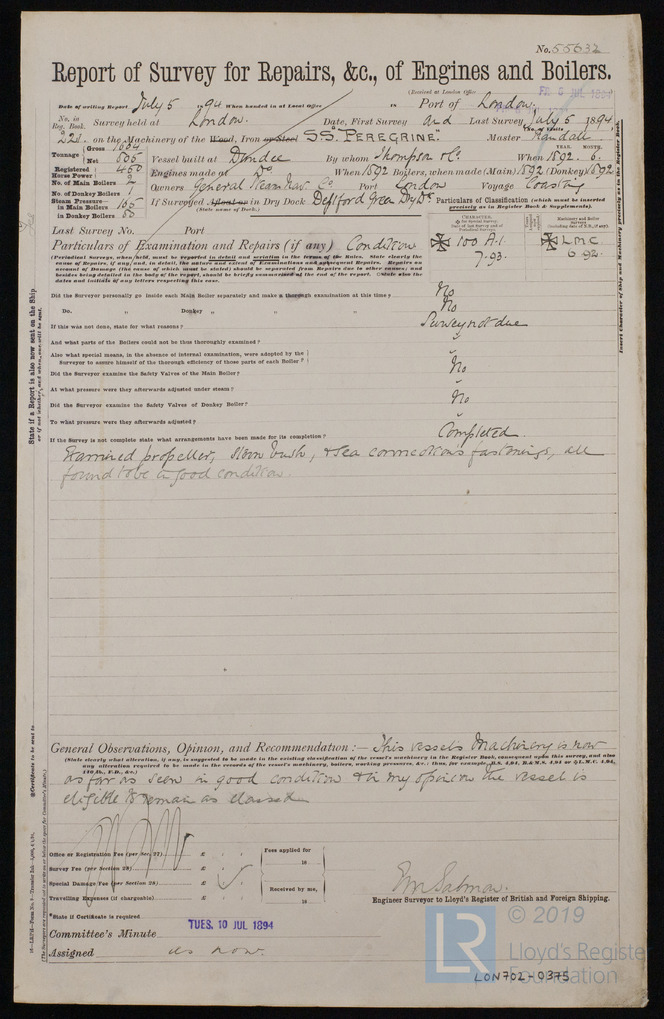 No. 55632
Report of Survey for Repairs, &c., of Engines and Boilers.
(Received at London Office FRI 6 JUL 1894
Date of writing Report July 5 1894 When handed in at Local Office 18 Port of London.
No. in Reg. Book. Survey held at London. Date, First Survey and Last Survey, July 5 1894
221 on the Machinery of the Wood, Iron or Steel S.S. "PEREGRINE." Master Randall
Tonnage Gross 1664
Net 885
Vessel built at Dundee By whom Thompson & Co. When 1892. 6.
YEAR. MONTH.
Registered Horse Power 450
Engines made at Do When 1892 Boilers, when made (Main) 1892 (Donkey) 1892
No. of Main Boilers 2
Owners General Steam Nav. Co. Port London Voyage Coasting
No. of Donkey Boilers 1
Steam Pressure—
in Main Boilers 165
in Donkey Boilers 80
If Surveyed Afloat or in Dry Dock Deptford Green Dry Dk
(State name of Dock.)
Particulars of Classification (which must be inserted
precisely as in Register Book & Supplements).
Last Survey No. Port
✠ 100 A.1.
7.93.
✠ L.M.C.
6.92
Particulars of Examination and Repairs (if any) Condition
(Periodical Surveys, when held, must be reported in detail and seriatim in the terms of the Rules. State clearly the
cause of Repairs, if any, and, in detail, the nature and extent of Examinations and subsequent Repairs. Repairs on
account of Damage (the cause of which must be stated) should be separated from Repairs due to other causes; and
besides being detailed in the body of the report, should be briefly summarized at the end of the report. State also the
dates and initials of any letters respecting this case.
Did the Surveyor personally go inside each Main Boiler separately and make a thorough examination at this time? No
Do. " Donkey " " " No
If this was not done, state for what reasons? Survey not due
And what parts of the Boilers could not be thoroughly examined? "
Also what special means, in the absence of internal examination, were adopted by the
Surveyor to assure himself of the thorough efficiency of those parts of each Boiler? "
Did the Surveyor examine the Safety Valves of the Main Boiler? No
At what pressure were they afterwards adjusted under steam? "
Did the Surveyor examine the Safety Valves of Donkey Boiler? No
To what pressure were they afterwards adjusted? "
If the Survey is not complete state what arrangements have been made for its completion? Completed.
Examined propeller, stern bush, & sea connections fastenings, all
found to be in good condition.
General Observations, Opinion, and Recommendation:— This vessel's Machinery is now
(State clearly what alteration, if any, is suggested to be made in the existing classification of the vessel's machinery in the Register Book, consequent upon this survey, and also
any alteration required to be made in the records of the vessel's machinery, boilers, working pressures, &c.: thus, for example, B.S. 4,94, B.&M.S. 4,94 or ✠ L.M.C. 4,94,
as far as seen in good condition & in my opinion the vessel is
eligible to remain as classed
Office or Registration Fee (per Sec. 27) £ : :
Survey Fee (per Section 28) £ : :
Special Damage Fee (per Section 28) £ : :
Travelling Expenses (if chargeable) £ : :
Fees applied for
18
Received by me,
18
E M Salmon.
Engineer Surveyor to Lloyd's Register of British and Foreign Shipping.
*State if Certificate is required
Committee's Minute TUES. 10 JUL 1894
Assigned as now.
State if a Report is also now sent on the Ship.
or if not whether, and when, one will be sent.
Insert Character of Ship and Machinery precisely as in the Register Book.
LR
© 2019
Lloyd's Register
Foundation
LON702-0375